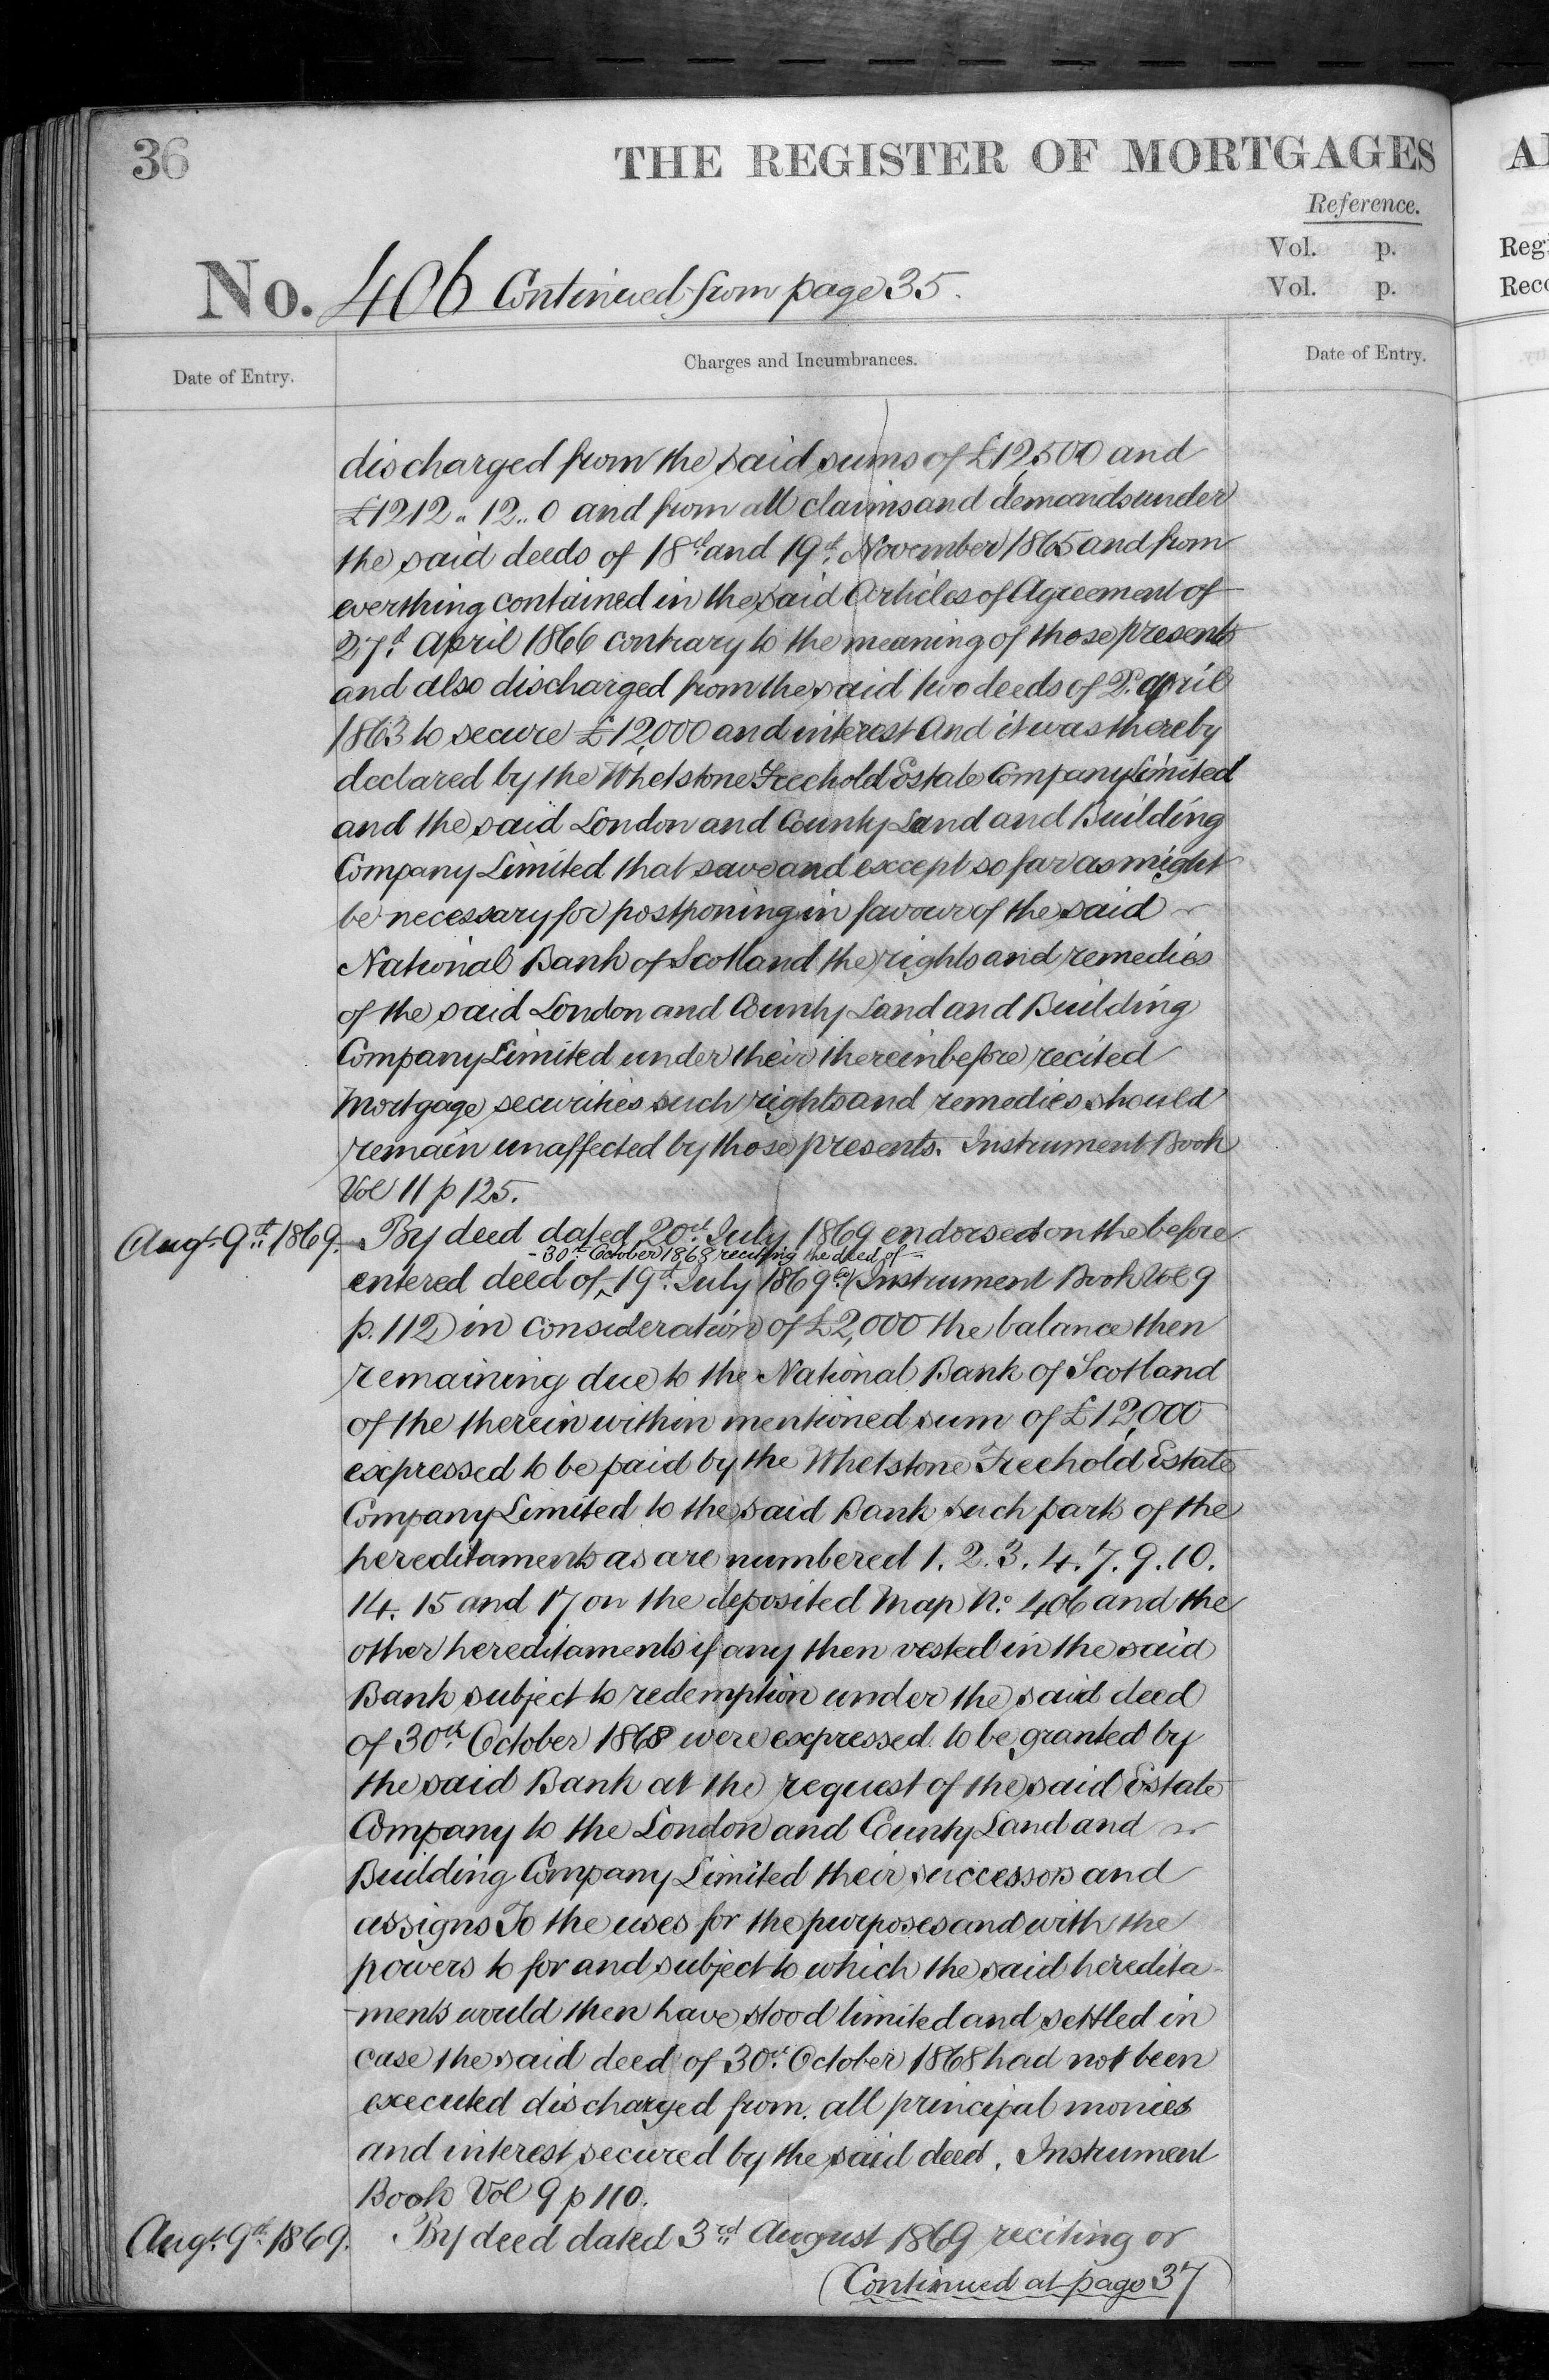 36
THE REGISTER OF MORTGAGES
Reference.
Vol. p.
Vol. p.
No. 406 Continued from page 35.
Date of Entry.
Charges and Incumbrances.
Date of Entry.
discharged from the said sums of £12,500 and
£1212 " 12 " 0 and from all claims and demands under
the said deeds of 18th and 19th November 1865 and from
everthing contained in the said Articles of Agreement of
27th April 1866 contrary to the meaning of those presents
and also discharged from the said two deeds of 2d April
1863 to secure £12,000 and interest And it was thereby
declared by the Whetstone Freehold Estate Company Limited
and the said London and County Land and Building
Company Limited that save and except so far as might
be necessary for postponing in favour of the said
National Bank of Scotland the rights and remedies
of the said London and County Land and Building
Company Limited under their thereinbefore recited
Mortgage securities such rights and remedies should
remain unaffected by those presents. Instrument Book
Vol 11 p 125.
Augt. 9th 1869. By deed dated 20th July 1869 endorsed on the before
- 30th October 1868 reciting the deed of -
entered deed of 19th July 1869 (Instrument Book Vol 9
p. 112) in consideration of £2,000 the balance then
remaining due to the National Bank of Scotland
of the therein within mentioned sum of £12,000
expressed to be paid by the Whetstone Freehold Estate
Company Limited to the said Bank such parts of the
hereditaments as are numbered 1. 2. 3. 4. 7. 9. 10.
14. 15 and 17 on the deposited Map No. 406 and the
other hereditaments if any then vested in the said
Bank subject to redemption under the said deed
of 30th October 1868 were expressed to be granted by
the said Bank at the request of the said Estate
Company to the London and County Land and
Building Company Limited their successors and
assigns To the uses for the purposes and with the
powers to for and subject to which the said heredita-
-ments would then have stood limited and settled in
case the said deed of 30th October 1868 had not been
executed discharged from all principal monies
and interest secured by the said deed. Instrument
Book Vol 9 p 110.
Augt. 9th 1869. By deed dated 3rd August 1869 reciting or
(Continued at page 37)
Regi
Reco